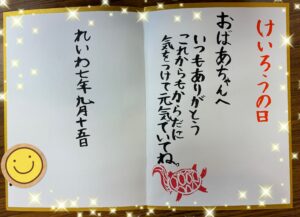 けいろうの日
おばあちゃんへ
いつもありがとう
これからもからだに
気をつけて元気でいてね。
れいわ七年九月十五日